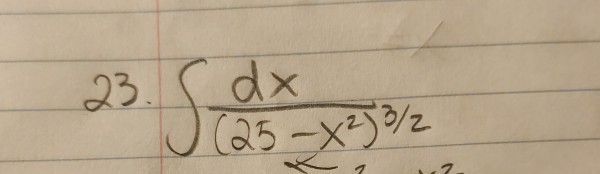 23. ∫ dx / (25 - x²)^3/2